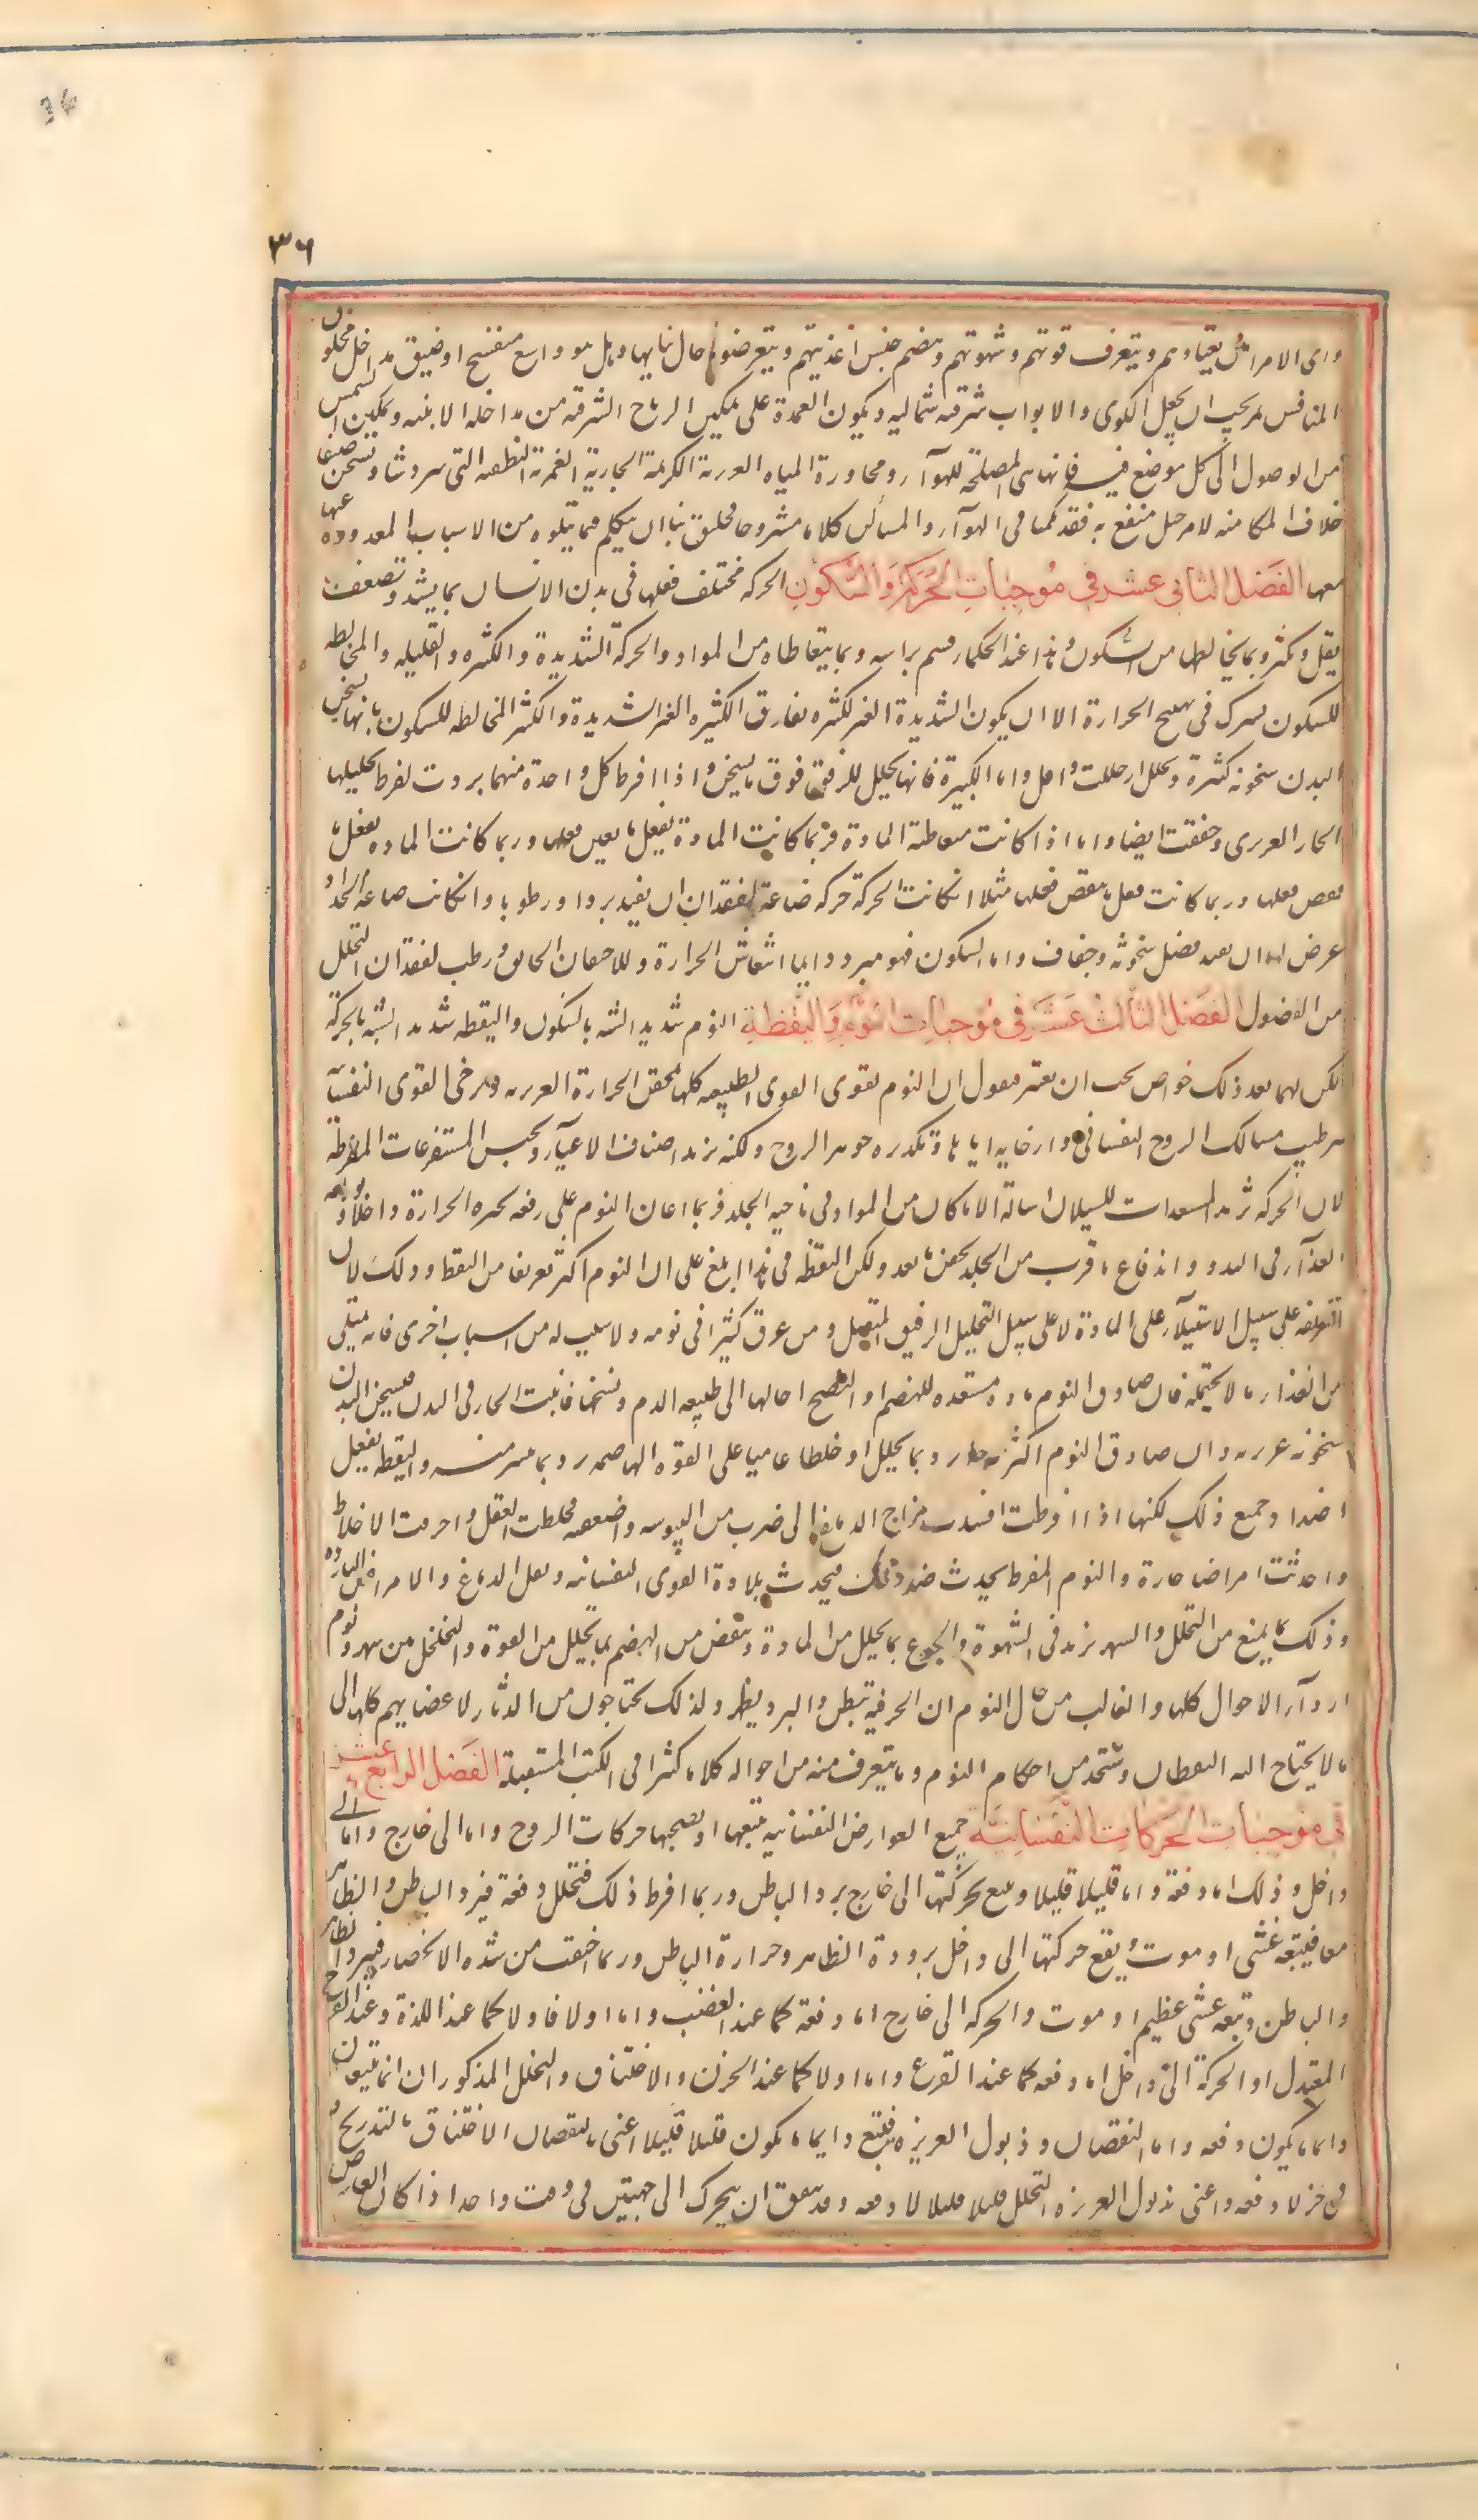 ٣٦
واى الامراض يعتادهم ويتعرف قوتهم وشهوتهم وهضم جنس اغذيتهم ويتعرض حال مايها وهل هو واسع منفسح او ضيق مداخل مخلوق
المنافس ثم يجب ان يجعل الكوى والابواب شرقيه شماليه ويكون العمدة على تمكين الرياح الشرقيه من مداخله الابنيه وتمكين الشمس
من الوصول الى كل موضع فيه فانها هى المصلحة للهوآء ومجاورة المياه العذبة الكريمة الجارية الغمرة النظيفه التى تبرد شتاء وتسخن صيفا
خلاف الكامنه لامر جيد منتفع به فقد تكلمنا فى الهوآء والمساكن كلاما مشروحا فخليق بنا ان نتكلم فيما يتلوه من الاسباب المعدودة
معها الفَصل الثانى عشر فى مُوجبات الحَركة وَالسّكون الحركه مختلف فعلها فى بدن الانسان بما يشتد وتضعف
يقل وتكثر وبما يخالطها من السكون وهذا عند الحكماء قسم براسه وبما يتعاطاه من المواد والحركة الشديدة والكثيره والقليله والمخالطه
للسكون يشترك فى تهييج الحرارة الا ان يكون الشديدة الغير كثيره يفارق الكثيره الغير الشديدة والكثيره المخالطه للسكون بانها يسخن
البدن سخونه كثيرة وتحلل ان حللت اقل واما الكبيرة فانها تحلل للرفق فوق ما يسخن واذا افرط كل واحدة منهما بردت لفرط تحليلها
الحار الغريزى وجففت ايضا واما اذا كانت متعاطيه المادة فربما كانت المادة يفعل ما يعين فعلها وربما كانت الماده يفعل ما
ينقص فعلها وربما كانت يفعل ما ينقص فعلها مثلا ان كانت الحركة حركه صناعة القصارة ان يفيد بردا ورطوبا وان كانت صناعة الحدادة
عرض لها ان يفيد فضل سخونة وجفاف واما السكون فهو مبرد دايما انتعاش الحرارة وللاحتقان الخانق ومرطب لفقدان التحلل
من الفضول الفَصل الثالث عَشَر فى مُوجبات النّوم وَاليَقظة النوم شديد الشبه بالسكون واليقظه شديد الشبه بالحركة
لكن لهما بعد ذلك خواص يجب ان يعتبر فيقول ان النوم يقوى القوى الطبيعيه كلها بحقن الحرارة الغريزيه ويرخى القوى النفسانيه
بترطيب مسالك الروح النفسانى وارخايه اياها وتكديره جوهر الروح ولكنه يزيد اصناف الاعيآء ويحبس المستفرغات المفرطة
لان الحركه تزيد المستعدات للسيلان اسالة الا ما كان من المواد فى ناحيه الجلد فربما اعان النوم على دفعه بحصره الحرارة داخلا وتوزيعه
الغذآء فى البدن واندفاع ما قرب من الجلد بحفز ما بعد ولكن اليقظه فى هذا ابلغ على ان النوم اكثر تعريفا من اليقظه وذلك لان
تعريفه على سبيل الاستيلآء على المادة لا على سبيل التحليل الرقيق المتصل ومن عرق كثيرا فى نومه ولا سبب له من اسباب اخرى فانه ممتلى
من الغذاء ما لا يحتمله فان صادف النوم ماده مستعده للهضم او النضج احالها الى طبيعه الدم وسخنها فانبث الحار فى البدن فيسخن البدن
سخونه غريزيه وان صادف النوم اكثر وبما يحلل او خلطا عاصيا على القوه الهاضمه برد بما ينشر منه واليقظه يفعل
اضداد جميع ذلك لكنها اذا افرطت افسدت مزاج الدماغ الى ضرب من اليبوسه واضعفته فخلطت العقل واحرقت الاخلاط
واحدثت امراضا حارة والنوم المفرط يحدث ضد ذلك فيحدث بلادة القوى النفسانيه وثقل الدماغ والامراض البارده
وذلك بما يمنع من التحلل والسهر يزيد فى الشهوة والجوع بما يحلل من المادة وينقص من الهضم بما يحلل من القوة والتخلخل من سهر ونوم
اردآء الاحوال كلها والغالب من حال النوم ان الحر فيه يبطن والبرد يظهر ولذلك يحتاجون من الدثار لاعضايهم كلها الى
ما لا يحتاج اليه اليقظان وستجد من احكام النوم وما يتعرف منه من احواله كلاما كثيرا فى الكتب المستقبلة الفَصل الرابع عشر
فى مُوجبات الحَركات النّفسانيّة جميع العوارض النفسانيه يتبعها او يصحبها حركات الروح واما الى خارج واما الى
داخل وذلك اما دفعة واما قليلا قليلا ويتبع حركتها الى خارج برد الباطن وربما افرط ذلك فتحلل دفعة فيبرد الباطن والظاهر
معا فيتبعه غشى او موت ويقع حركتها الى داخل برودة الظاهر وحرارة الباطن وربما اختنقت من شده الانحصار فيبرد الظاهر
والباطن وتبعه غشى عظيم او موت والحركه الى خارج اما دفعة كما عند الغضب واما اولا فاولا كما عند اللذة وعند الفرح
المعتدل او الحركة الى داخل اما دفعه كما عند الفزع واما اولا كما عند الحزن والاختناق والتحلل المذكوران انما يتبعان
دايما ما يكون دفعه واما النقصان وذبول الغريزه فيتبع دايما ما يكون قليلا قليلا اعنى بالنقصان الاختناق بالتدريج
فى جزء لا دفعه واعنى بذبول الغريزه التحلل قليلا قليلا لا دفعه وقد يتفق ان يتحرك الى جهتين فى وقت واحد اذا كان العارض